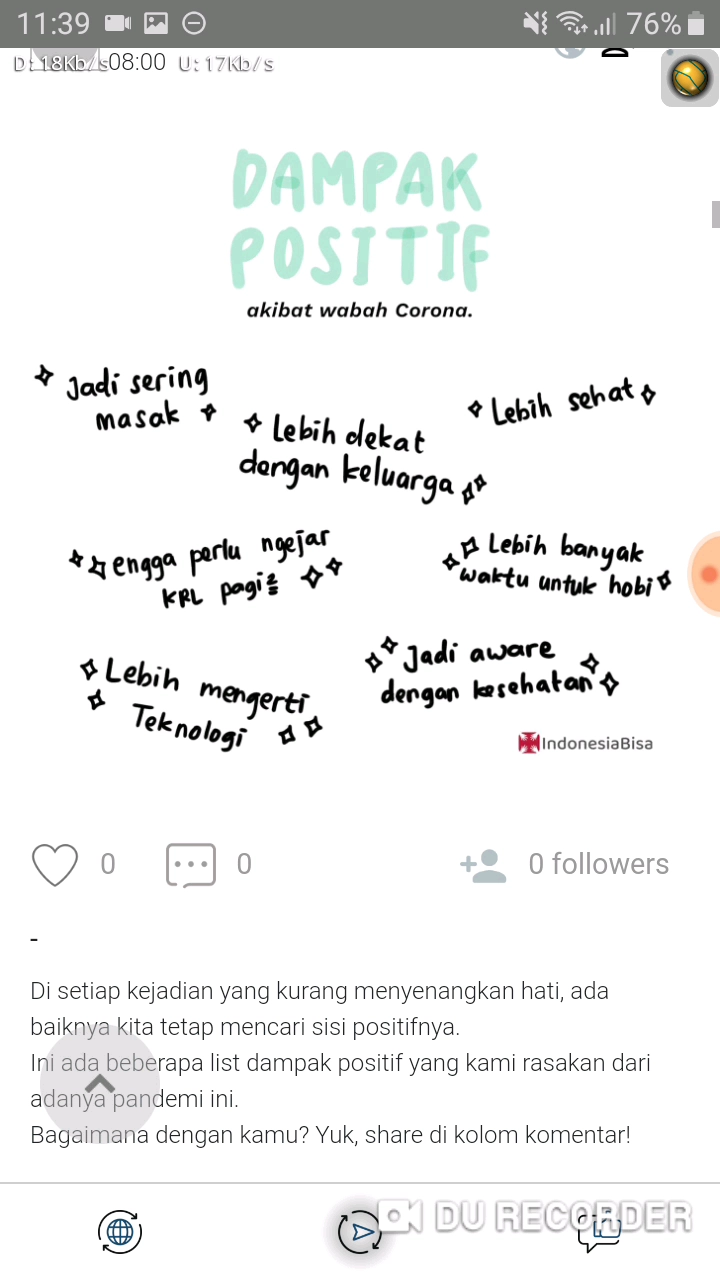 11:39
76%
D: 18Kb/s 08:00 U: 17Kb/s
DAMPAK
POSITIF
akibat wabah Corona.
Jadi sering
masak
Lebih dekat
dengan keluarga
Lebih sehat
engga perlu ngejar
KRL pagi²
Lebih banyak
waktu untuk hobi
Lebih mengerti
Teknologi
Jadi aware
dengan kesehatan
IndonesiaBisa
0
0
0 followers
-
Di setiap kejadian yang kurang menyenangkan hati, ada
baiknya kita tetap mencari sisi positifnya.
Ini ada beberapa list dampak positif yang kami rasakan dari
adanya pandemi ini.
Bagaimana dengan kamu? Yuk, share di kolom komentar!
DU RECORDER